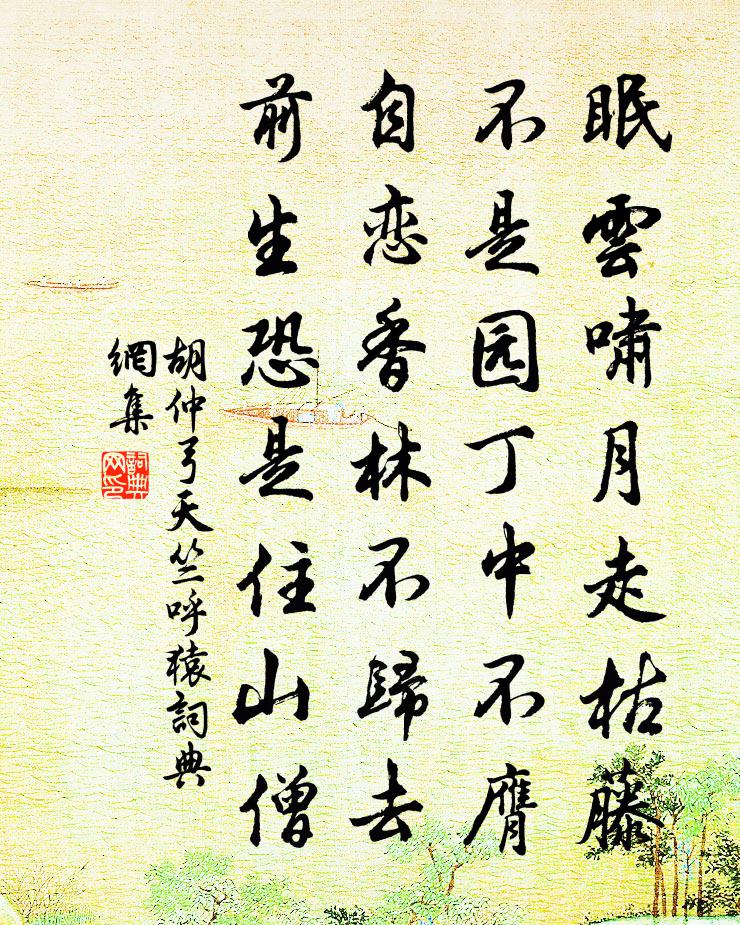 眠雲嘯月走枯藤
不是园丁中不膺
自恋香林不歸去
前生恐是住山僧
胡仲弓天竺呼猿詞典
網集
詞典
网印